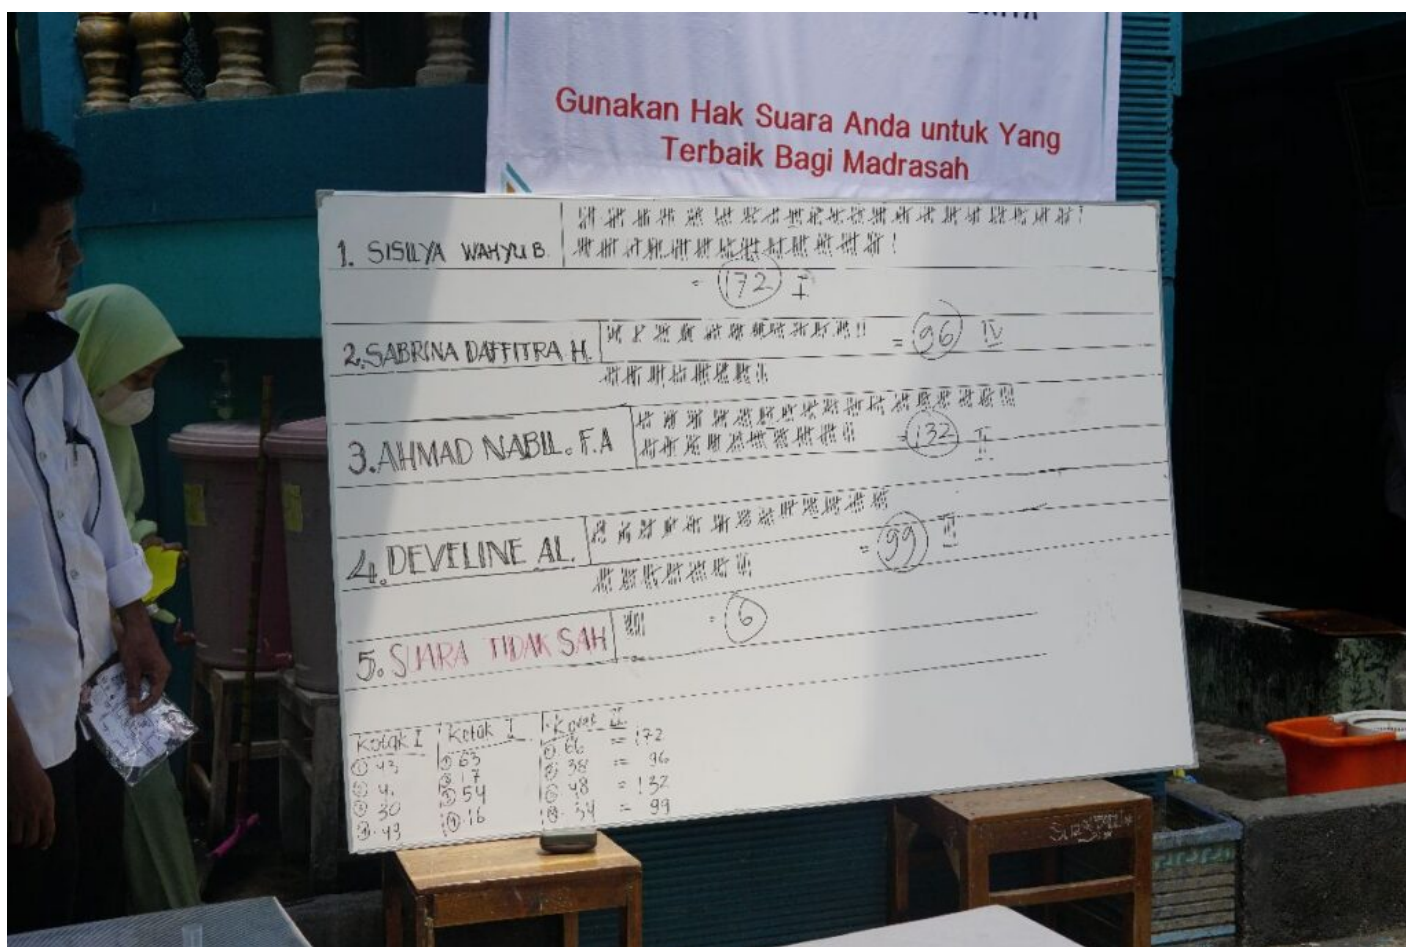 Gunakan Hak Suara Anda untuk Yang
Terbaik Bagi Madrasah
1. SISILYA WAHYU B.
= 172 I
2. SABRINA DAFFITRA H. = 96 IV
3. AHMAD NABIL. F.A = 132 II
4. DEVELINE AL. = 99 III
5. SUARA TIDAK SAH = 6
Kotak I Kotak II
① 43 ① 63 ① 66 = 172
② 17 ② 38 = 96
③ 30 ③ 54 ③ 48 = 132
43 ④ 16 = 99